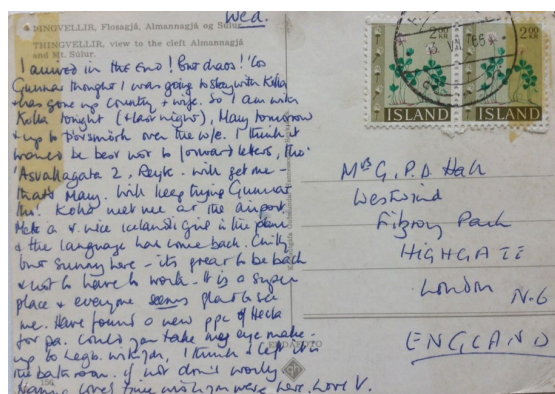 Wed.
ÞINGVELLIR, Flosagjá, Almannagjá og Súlur.
THINGVELLIR, view to the cleft Almannagjá
and Mt. Súlur.
I arrived in the end! But chaos! 'Cos
Gunnar thought I was going to stay with Kolla
& has gone up country & wife. So I am with
Kolla tonight (& last night), Mary tomorrow
& up to Þórsmörk over the w/e. I think it
would be best not to forward letters, tho'
Asvallagata 2, Reyk. will get me -
that's Mary. Will keep trying Gunnar
tho'. met me at the airport
Met a v. nice Icelandic girl in the plane
& the language has come back. Chilly
but sunny here - its great to be back
& not to have to work - It is a super
place & everyone seems glad to see
me. Have found a new ppc of Hecla
for pa. Could you take my eye make-
up to with you, I think I left it in
the bathroom. If not don't worry
love & time wish you were here. Love V.
156
2.00
KR
ÍSLAND
2.00
KR
ÍSLAND
Mrs G.P.D Hall
Westwind
Fitzroy Park
HIGHGATE
London N.6
ENGLAND